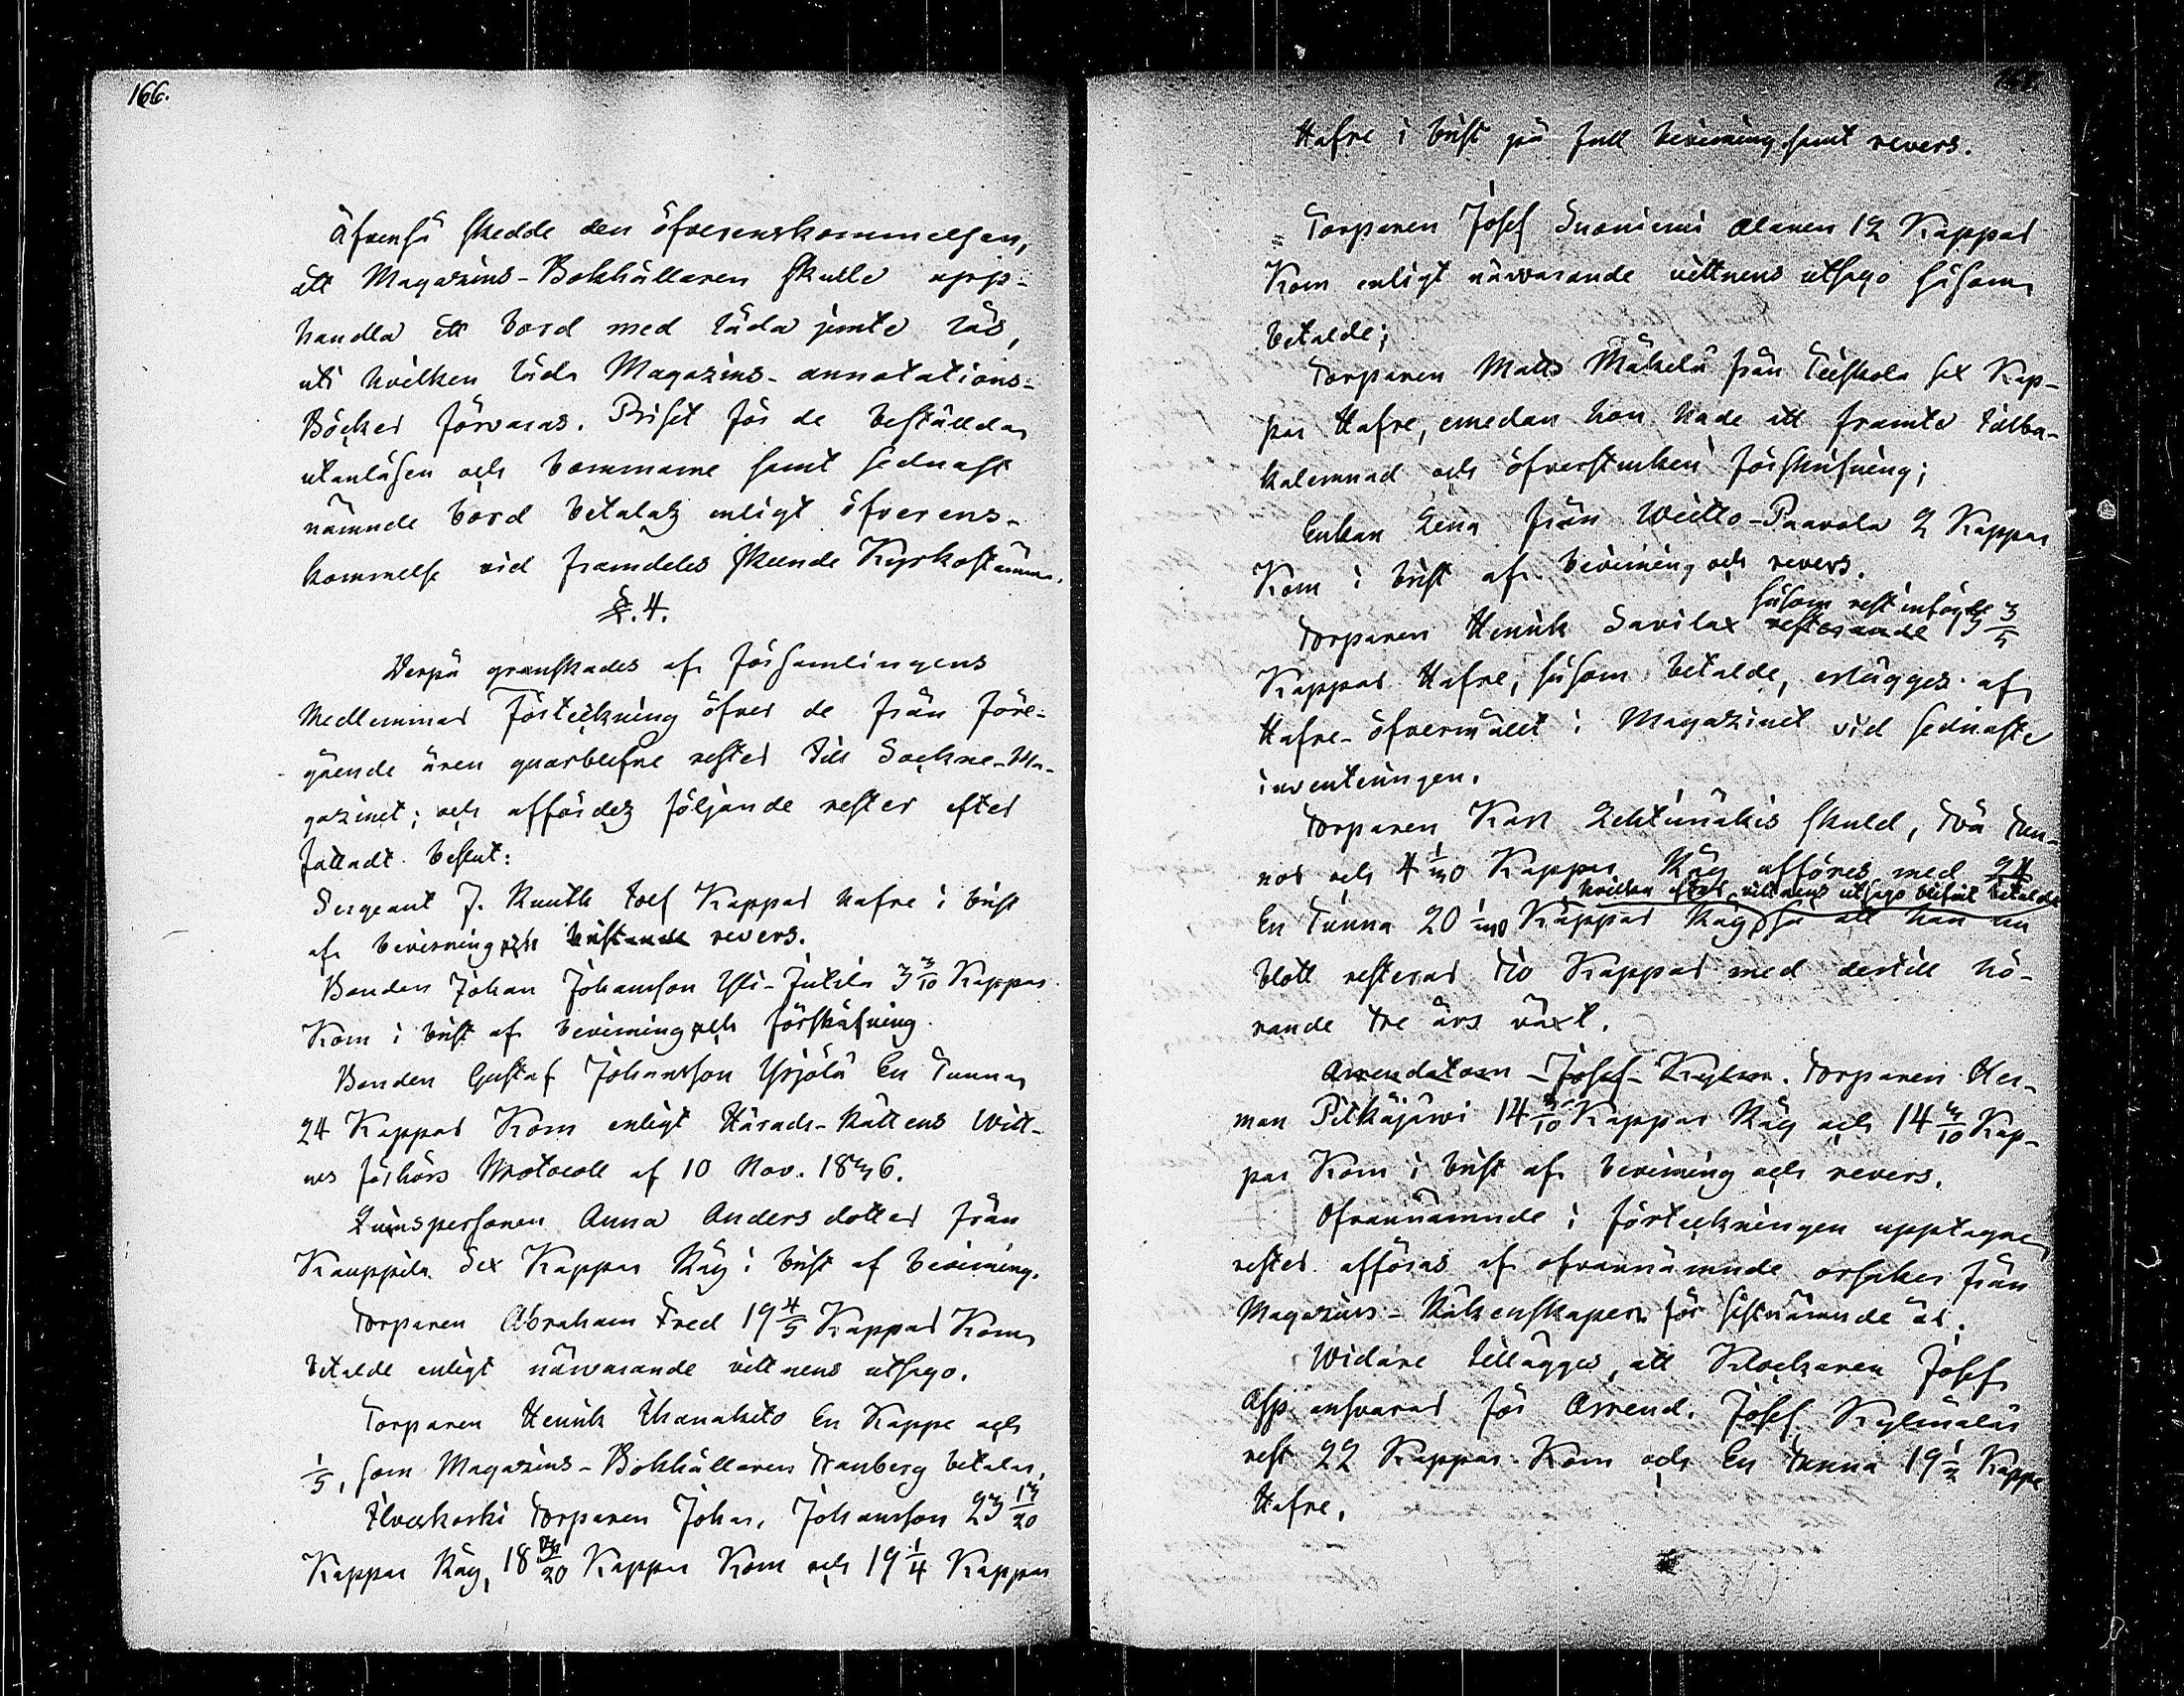 166.
Äfvenså skedde den öfverenskommelsen,
att Magazins-Bokhållaren skulle upp-
handla ett bord med låda jemte lås,
uti hvilken låda Magazins-annotations-
Böcker förvaras. Priset för de beställda
utanlåsen och bommarne samt sednast
nämnde bord betalas enligt öfverens-
kommelse vid framdeles skeende Kyrkostämma.
§. 4.
Derpå granskades af Församlingens
Medlemmar Förteckning öfver de från före-
gående åren qvarblefne rester till Sockne-Ma-
gazinet; och affördes följande rester efter
fattadt beslut:
Sergeant J. Knuth tolf Kappar hafre i brist
af bevisning och bristande revers.
Bonden Johan Johansson Yli-Jutila 3 3/10 Kappar
Korn i brist af bevisning och förskrifning.
Bonden Gustaf Johansson Yrjölä En Tunna
24 Kappar Korn enligt Härads-Rättens Witt-
nes förhörs Protocoll af 10 Nov. 1836.
Qvinspersonen Anna Anders dotter från
Kauppila Sex Kappar Råg i brist af bevisning.
Torparen Abraham Fred 19 4/5 Kappar Korn
betalde enligt närvarande vittnens utsago.
Torparen Henrik Ihanakito En Kappe och
1/5, som Magazins-Bokhållaren Tranberg betalar.
Ilveskoski Torparen Johan Johansson 23 13/20
Kappar Råg, 18 /20 Kappar Korn och 19 1/4 Kappar
Hafre i brist på full bevisning samt revers.
Torparen Josef Suoniemi Alanen 12 Kappar
Korn enligt närvarande vittnens utsago såsom
betalde;
Torparen Matts Mäkelä från Teiskola sex Kap-
par Hafre, emedan han hade ett framte tillba-
kalemnad och öfverstruken förskrifning;
Enkan Lena från Weitto-Paavola 2 Kappar
Korn i brist af bevisning och revers.
såsom rest införde
Torparen Henrik Savilax resterande 13 3/5
Kappar Hafre, såsom betalde, erlägges af
Hafre-öfvermålet i Magazinet vid sednaste
inventeringen.
Torparen Karl Lehtimäkis skuld, Två Tun-
nor och 4 1/30 Kappar Råg afföres med 24
hvilka efter vittnens utsago blifvit betalde
En Tunna 20 1/30 Kappar Råg, så att han nu
blott resterar tio Kappar med dertill hö-
rande tre års växt.
Arrendatorn Josef Kylm. Torparen Her-
man Pitkäjärvi 14 3/10 Kappar Råg och 14 3/10 Kap-
par Korn i brist af bevisning och revers.
Ofvannämnde i förteckningen upptagne
rester afföras af ofvannämnde orsaker från
Magazins-Räkenskapen för sistnämnde år.
Widare tillägges, att Klockaren Josef
Asp ansvarar för Arrend. Josef Kylmäläs
rest 22 Kappar Korn och En Tunna 19 1/2 Kappe
Hafre.